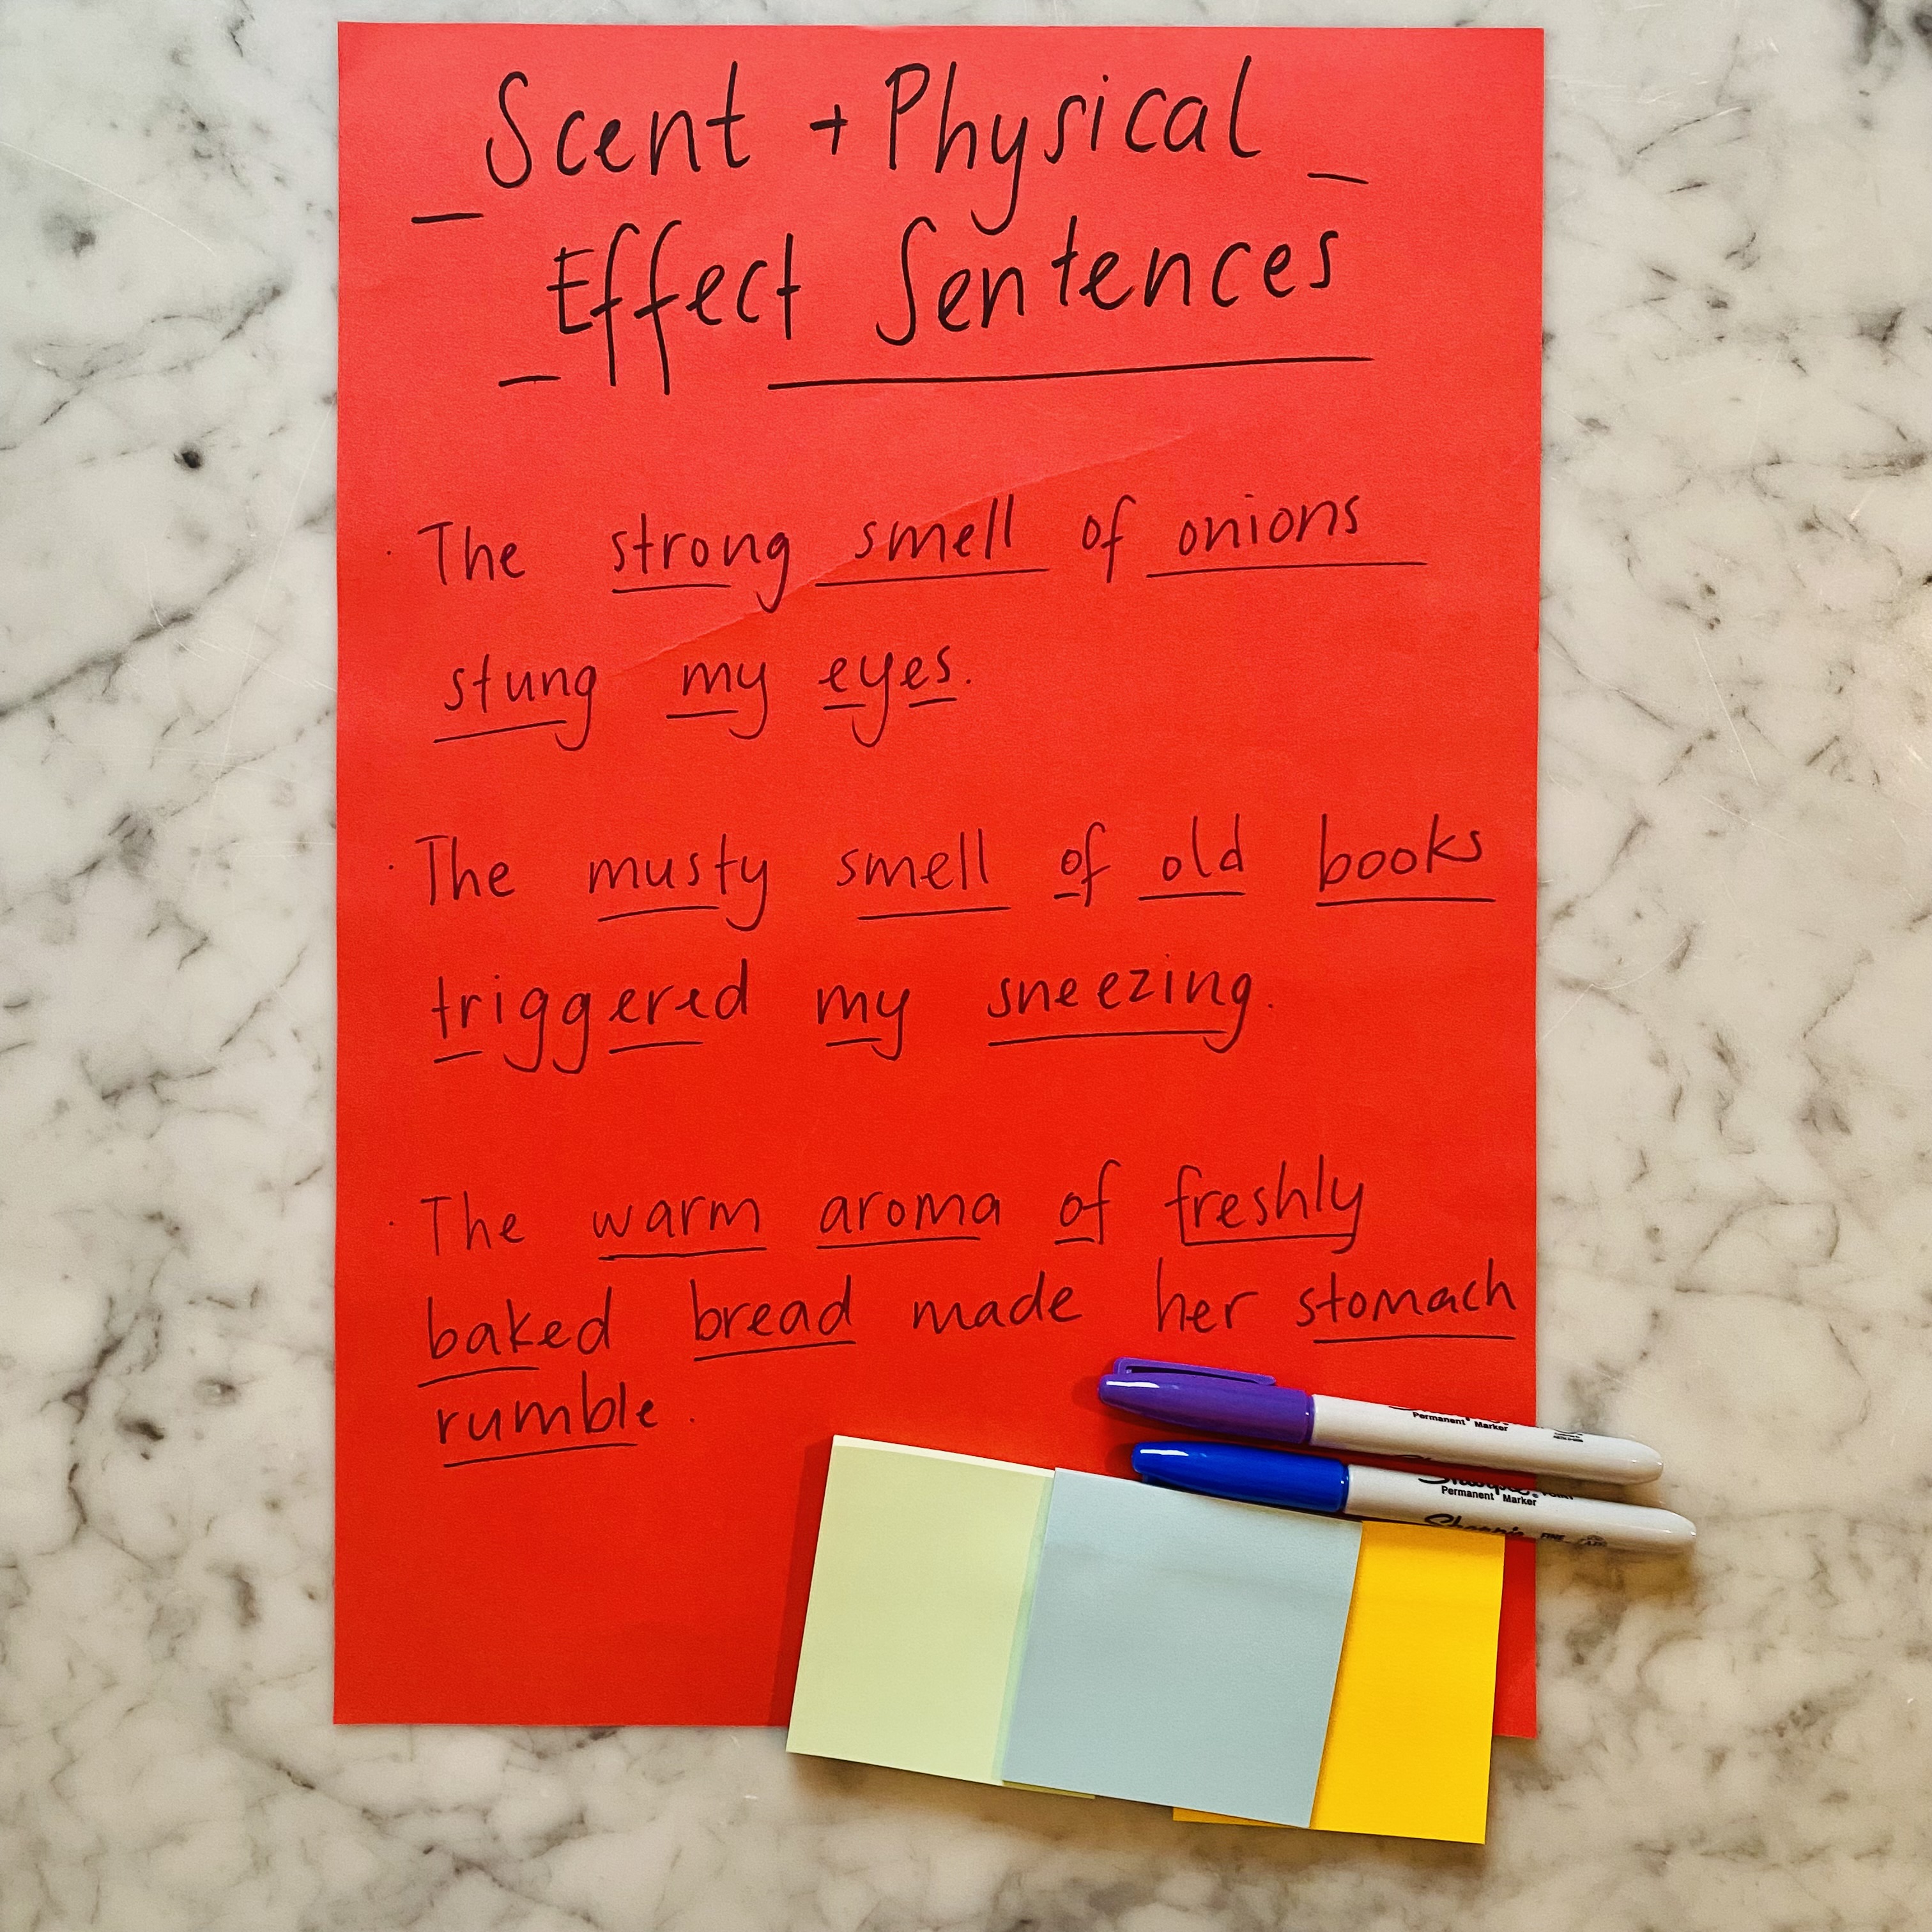 Scent + Physical
Effect Sentences
· The strong smell of onions
stung my eyes.
· The musty smell of old books
triggered my sneezing.
· The warm aroma of freshly
baked bread made her stomach
rumble.
Permanent Marker
Sharpie.
Permanent Marker
Sharpie FINE